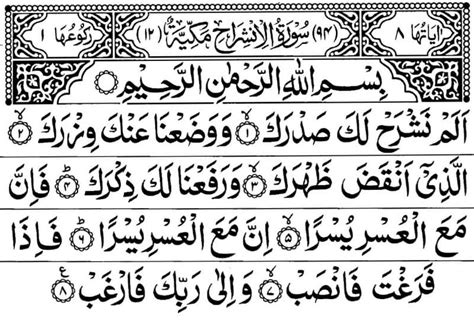 اٰيَاتُهَا ٨ (٩٤) سُوْرَةُ الْاِنْشِرَاحِ مَكِّيَّةٌ (١٢) رُكُوْعُهَا ١
بِسْمِ اللّٰهِ الرَّحْمٰنِ الرَّحِيْمِ
اَلَمْ نَشْرَحْ لَكَ صَدْرَكَ ۙ﴿١﴾ وَوَضَعْنَا عَنْكَ وِزْرَكَ ۙ﴿٢﴾
الَّذِيْٓ اَنْقَضَ ظَهْرَكَ ۙ﴿٣﴾ وَرَفَعْنَا لَكَ ذِكْرَكَ ؕ﴿٤﴾ فَاِنَّ
مَعَ الْعُسْرِ يُسْرًا ۙ﴿٥﴾ اِنَّ مَعَ الْعُسْرِ يُسْرًا ؕ﴿٦﴾ فَاِذَا
فَرَغْتَ فَانْصَبْ ۙ﴿٧﴾ وَاِلٰى رَبِّكَ فَارْغَبْ ﴿٨﴾ ع